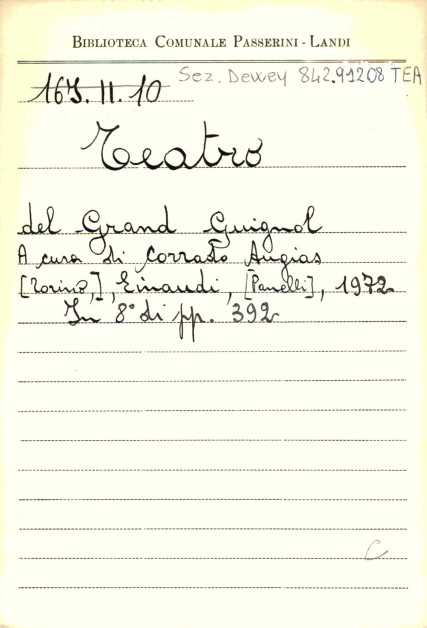 BIBLIOTECA COMUNALE PASSERINI - LANDI
Sez. Dewey 842.91208 TEA
167. II. 10
Teatro
del Grand Guignol
A cura di Corrado Augias
[Torino,], Einaudi, [Panelli], 1972
In 8° di pp. 392
C